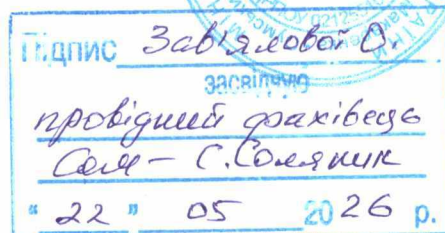 Підпис Зав'ялової О.
засвідчую
провідний фахівець
С. Соляник
"22" 05 2026 р.